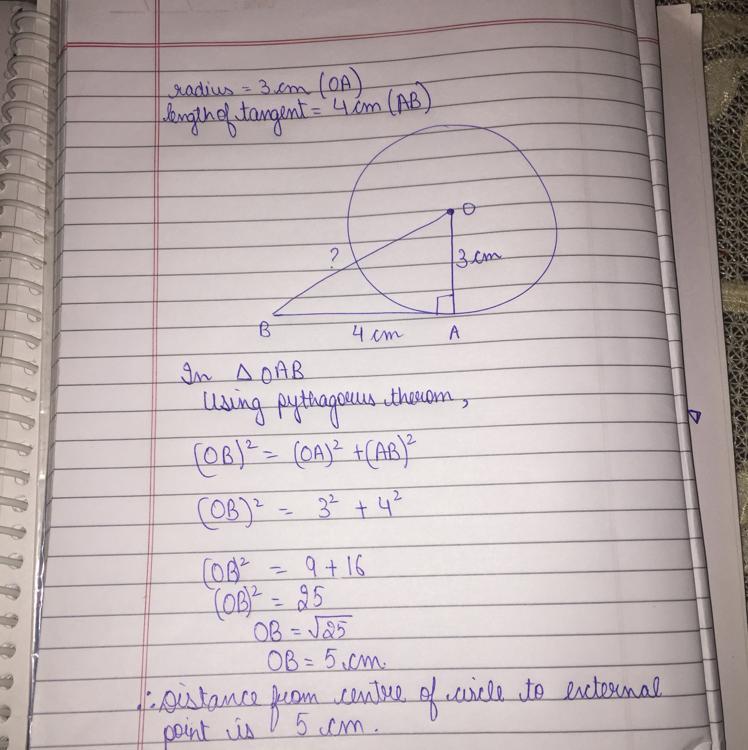 radius = 3 cm (OA)
length of tangent = 4 cm (AB)
O
?
3 cm
B
4 cm
A
In △OAB
Using pythagorus therom,
(OB)² = (OA)² + (AB)²
(OB)² = 3² + 4²
(OB)² = 9 + 16
(OB)² = 25
OB = √25
OB = 5 cm.
∴ Distance from centre of circle to external
point is 5 cm.